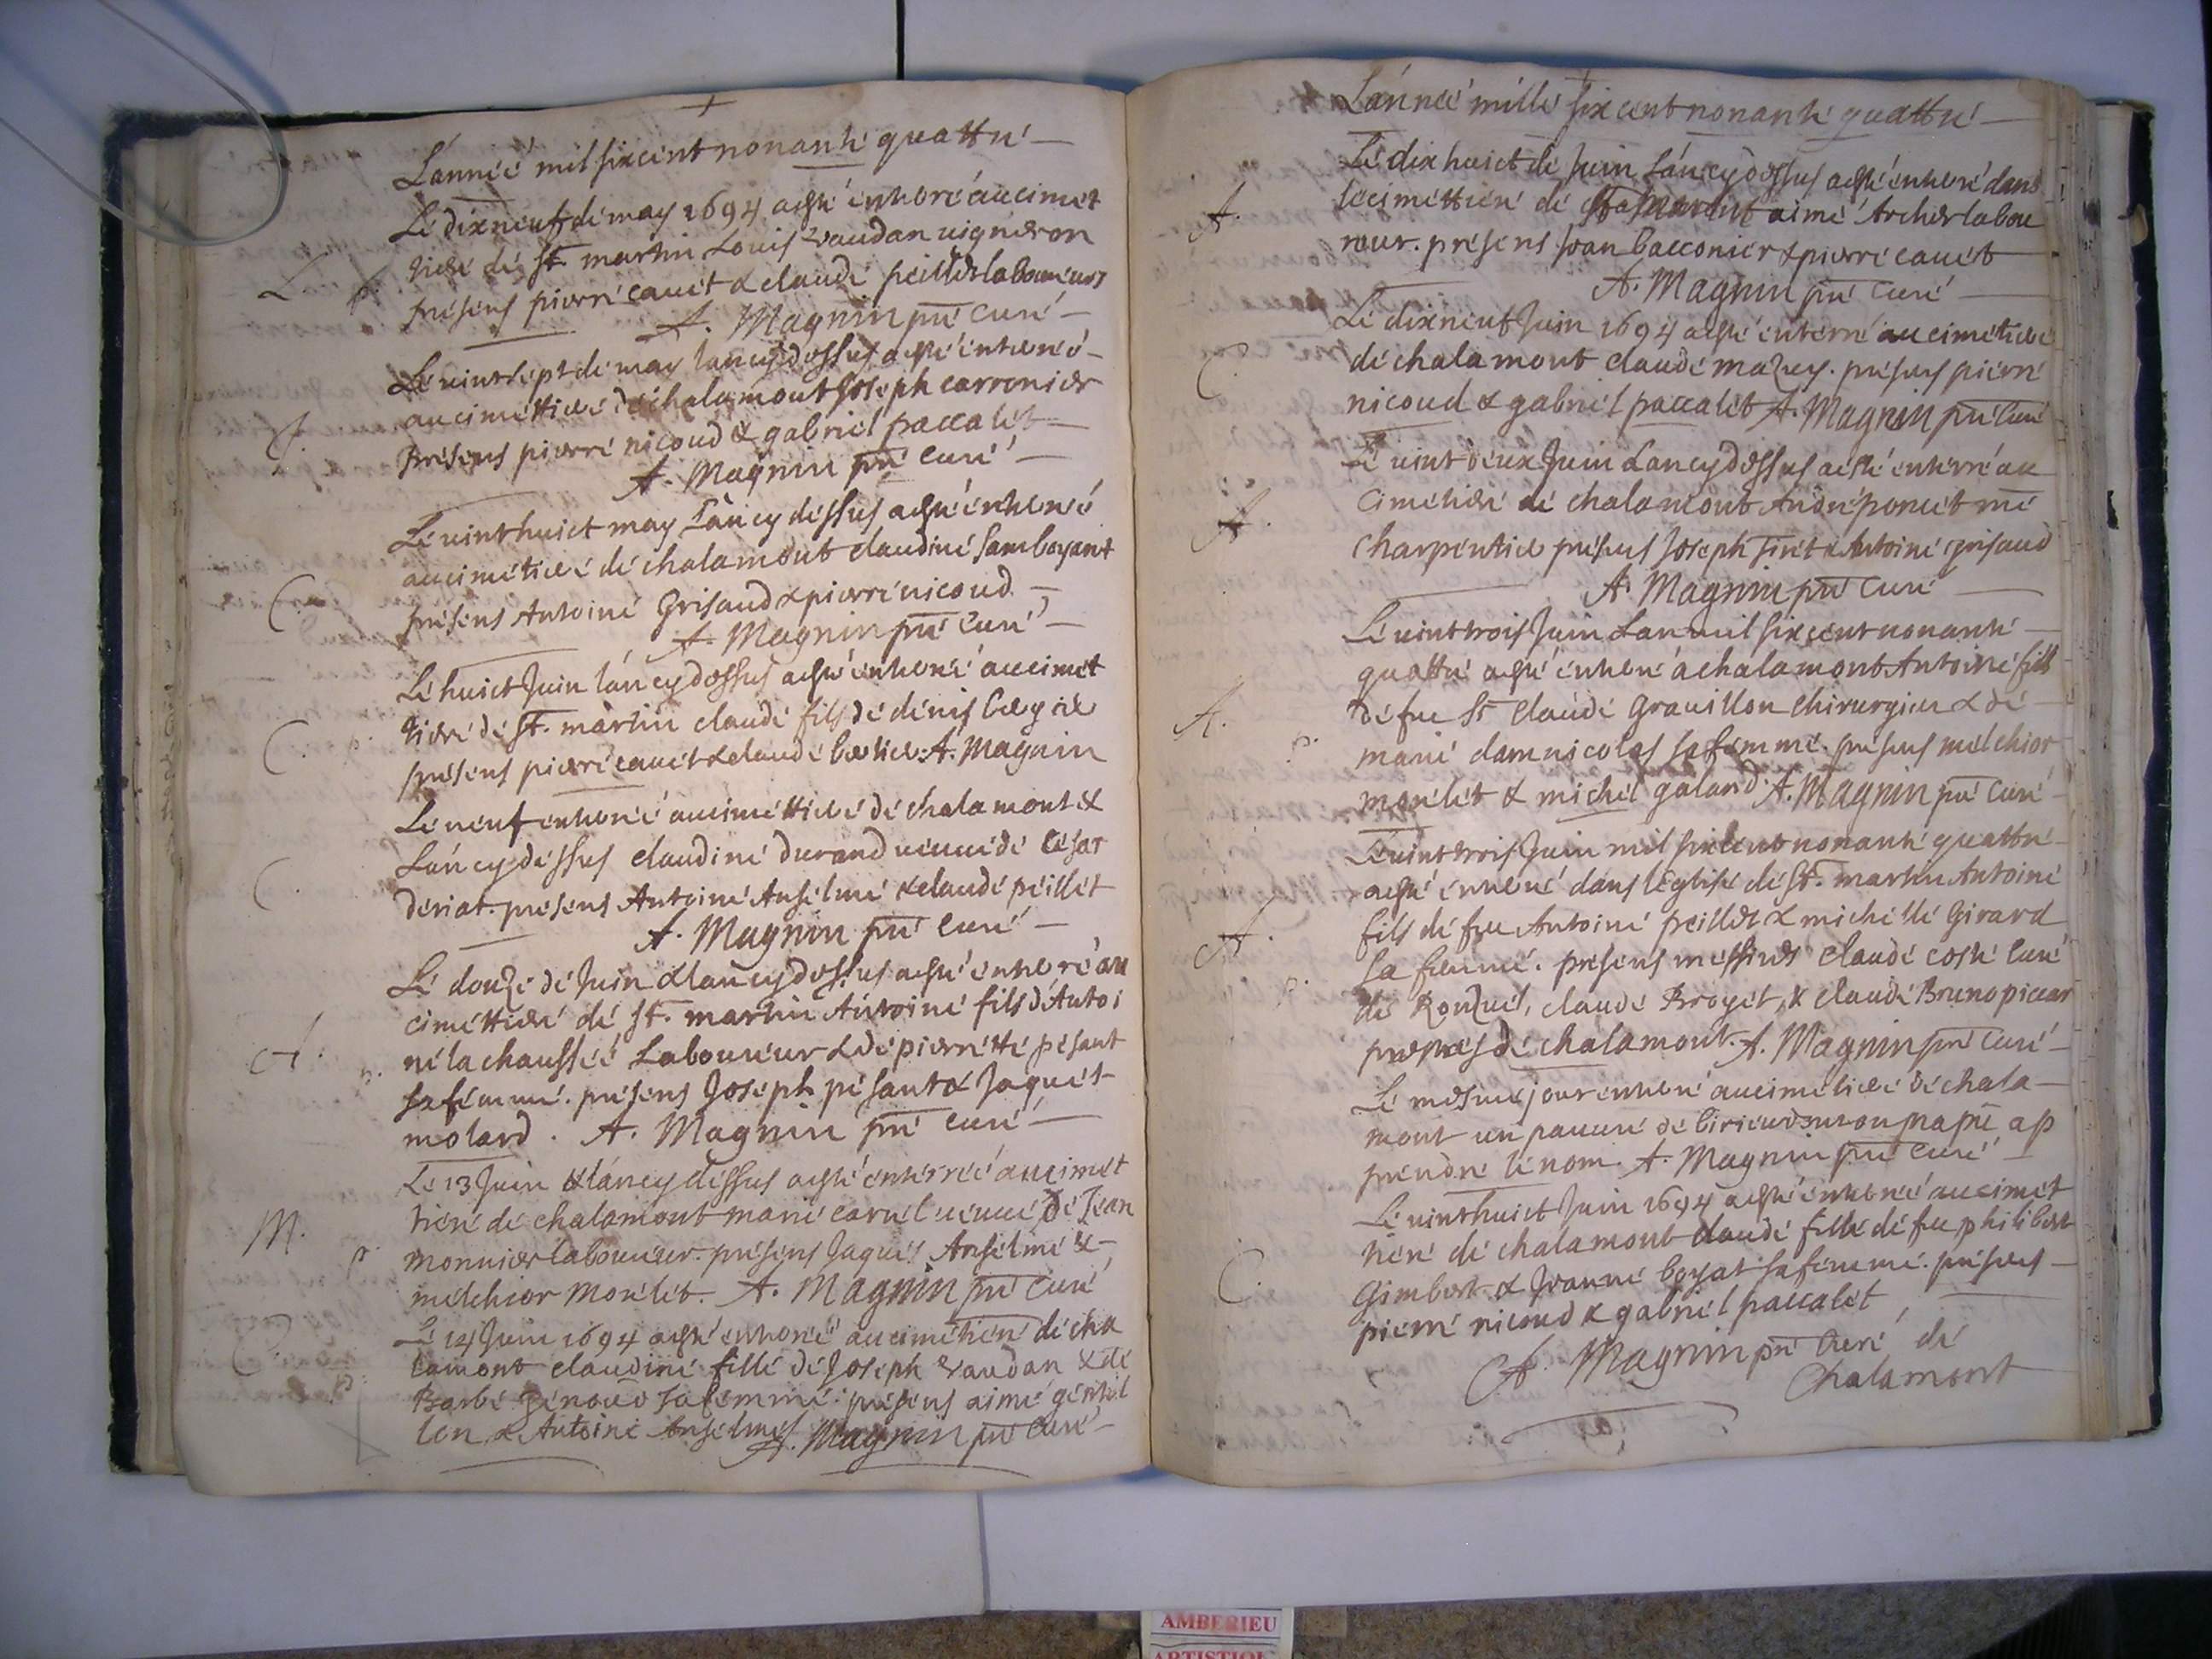 L'année mil six cent nonante quattre
Le dixneuf de may 1694 a esté enterré au cimet
tiere de St. martin Louis vaudan uigneron
L p. présens pierre cauet & claude peillet laboureurs
A. Magnin pre curé
Le uint sept de may l'an cy dessus a esté enterré
au cimettiere de chalamont Joseph carronier
J. présens pierre nicoud & gabriel paccalet
A. Magnin pre curé
Le uint huict may l'an cy dessus a esté enterreé
au cimetiere de chalamont claudine samboyant
C. présens Antoine Grisaud & pierre nicoud
A. Magnin pre curé
Le huict Juin l'an cy dessus a esté enterré au cimet
tiere de St. martin claude fils de denis
C. p. présens pierre cauet & claude bertier. A. Magnin
Le neuf enterreé au cimettiere de chalamont &
L'an cy dessus claudine durand ueuue de César
C. deriat. présens Antoine Anselme & claude peillet
A. Magnin pre curé
Le douze de Juin & l'an cy dessus a esté enterré au
cimettiere de St. martin Antoine fils d'Antoi
A. ne la chausseé Laboureur & de pierrette pésant
p. sa femme. présens Joseph pésant & Jaquet
molard. A. Magnin pre curé
Le 13 Juin & l'an cy dessus a esté enterreé au cimet
M. tiere de chalamont marie carrel ueuue de Jean
p. monnier laboureur. présens Jaques Anselme &
melchior Morélet. A. Magnin pre curé
Le 14 Juin 1694 a esté enterreé au cimetiere de cha
C. lamont claudine fille de Joseph vaudan & de
p. Barbe génoud sa femme. présens aimé
lon & Antoine Anselmes A. Magnin pre curé
L'anneé mille six cent nonante quattre
Le dix huict de Juin L'an cy dessus a esté enterré dans
A. le cimettiere de aimé Archer labou
reur. présens Joan bacconier & pierre cauet
A. Magnin pre curé
Le dixneuf Juin 1694 a esté enterré au cimetiere
C. de chalamont claude mazuy. présens pierre
nicoud & gabriel paccalet A. Magnin pre curé
Le uint deux Juin L'an cy dessus a esté enterré au
A. cimetiere de chalamont André poncet me
charpentier présens Joseph & Antoine grisaud
A. Magnin pre curé
Le uint trois Juin L'an mil six cent nonante
quattre a esté enterré a chalamont Antoine fils
A. de feu Sr Claude Grauillon chirurgien & de
p. marie damnicolas sa femme. présens melchior
morélet & michel galand A. Magnin pre curé
Le uint trois Juin mil six cent nonante quattre
a esté enterré dans l'église de St. martin Antoine
A. fils de feu Antoine peillet & michelle Girard
p. sa femme. présens messires claude coste curé
de Ronzuel, claude Broyet, & claude Bruno piccar
de chalamont. A. Magnin pre curé
Le mesme jour enterré au cimetiere de chala
mont un pauure de birieu dont on n'a pu ap
prendre le nom. A. Magnin pre curé
Le uint huict Juin 1694 a esté enterreé au cimet
tiere de chalamont claude fille de feu philibert
C. Gimbert & Jeanne boyat sa femme. présens
pierre nicoud & gabriel paccalet
A. Magnin pre curé de
Chalamont
AMBERIEU